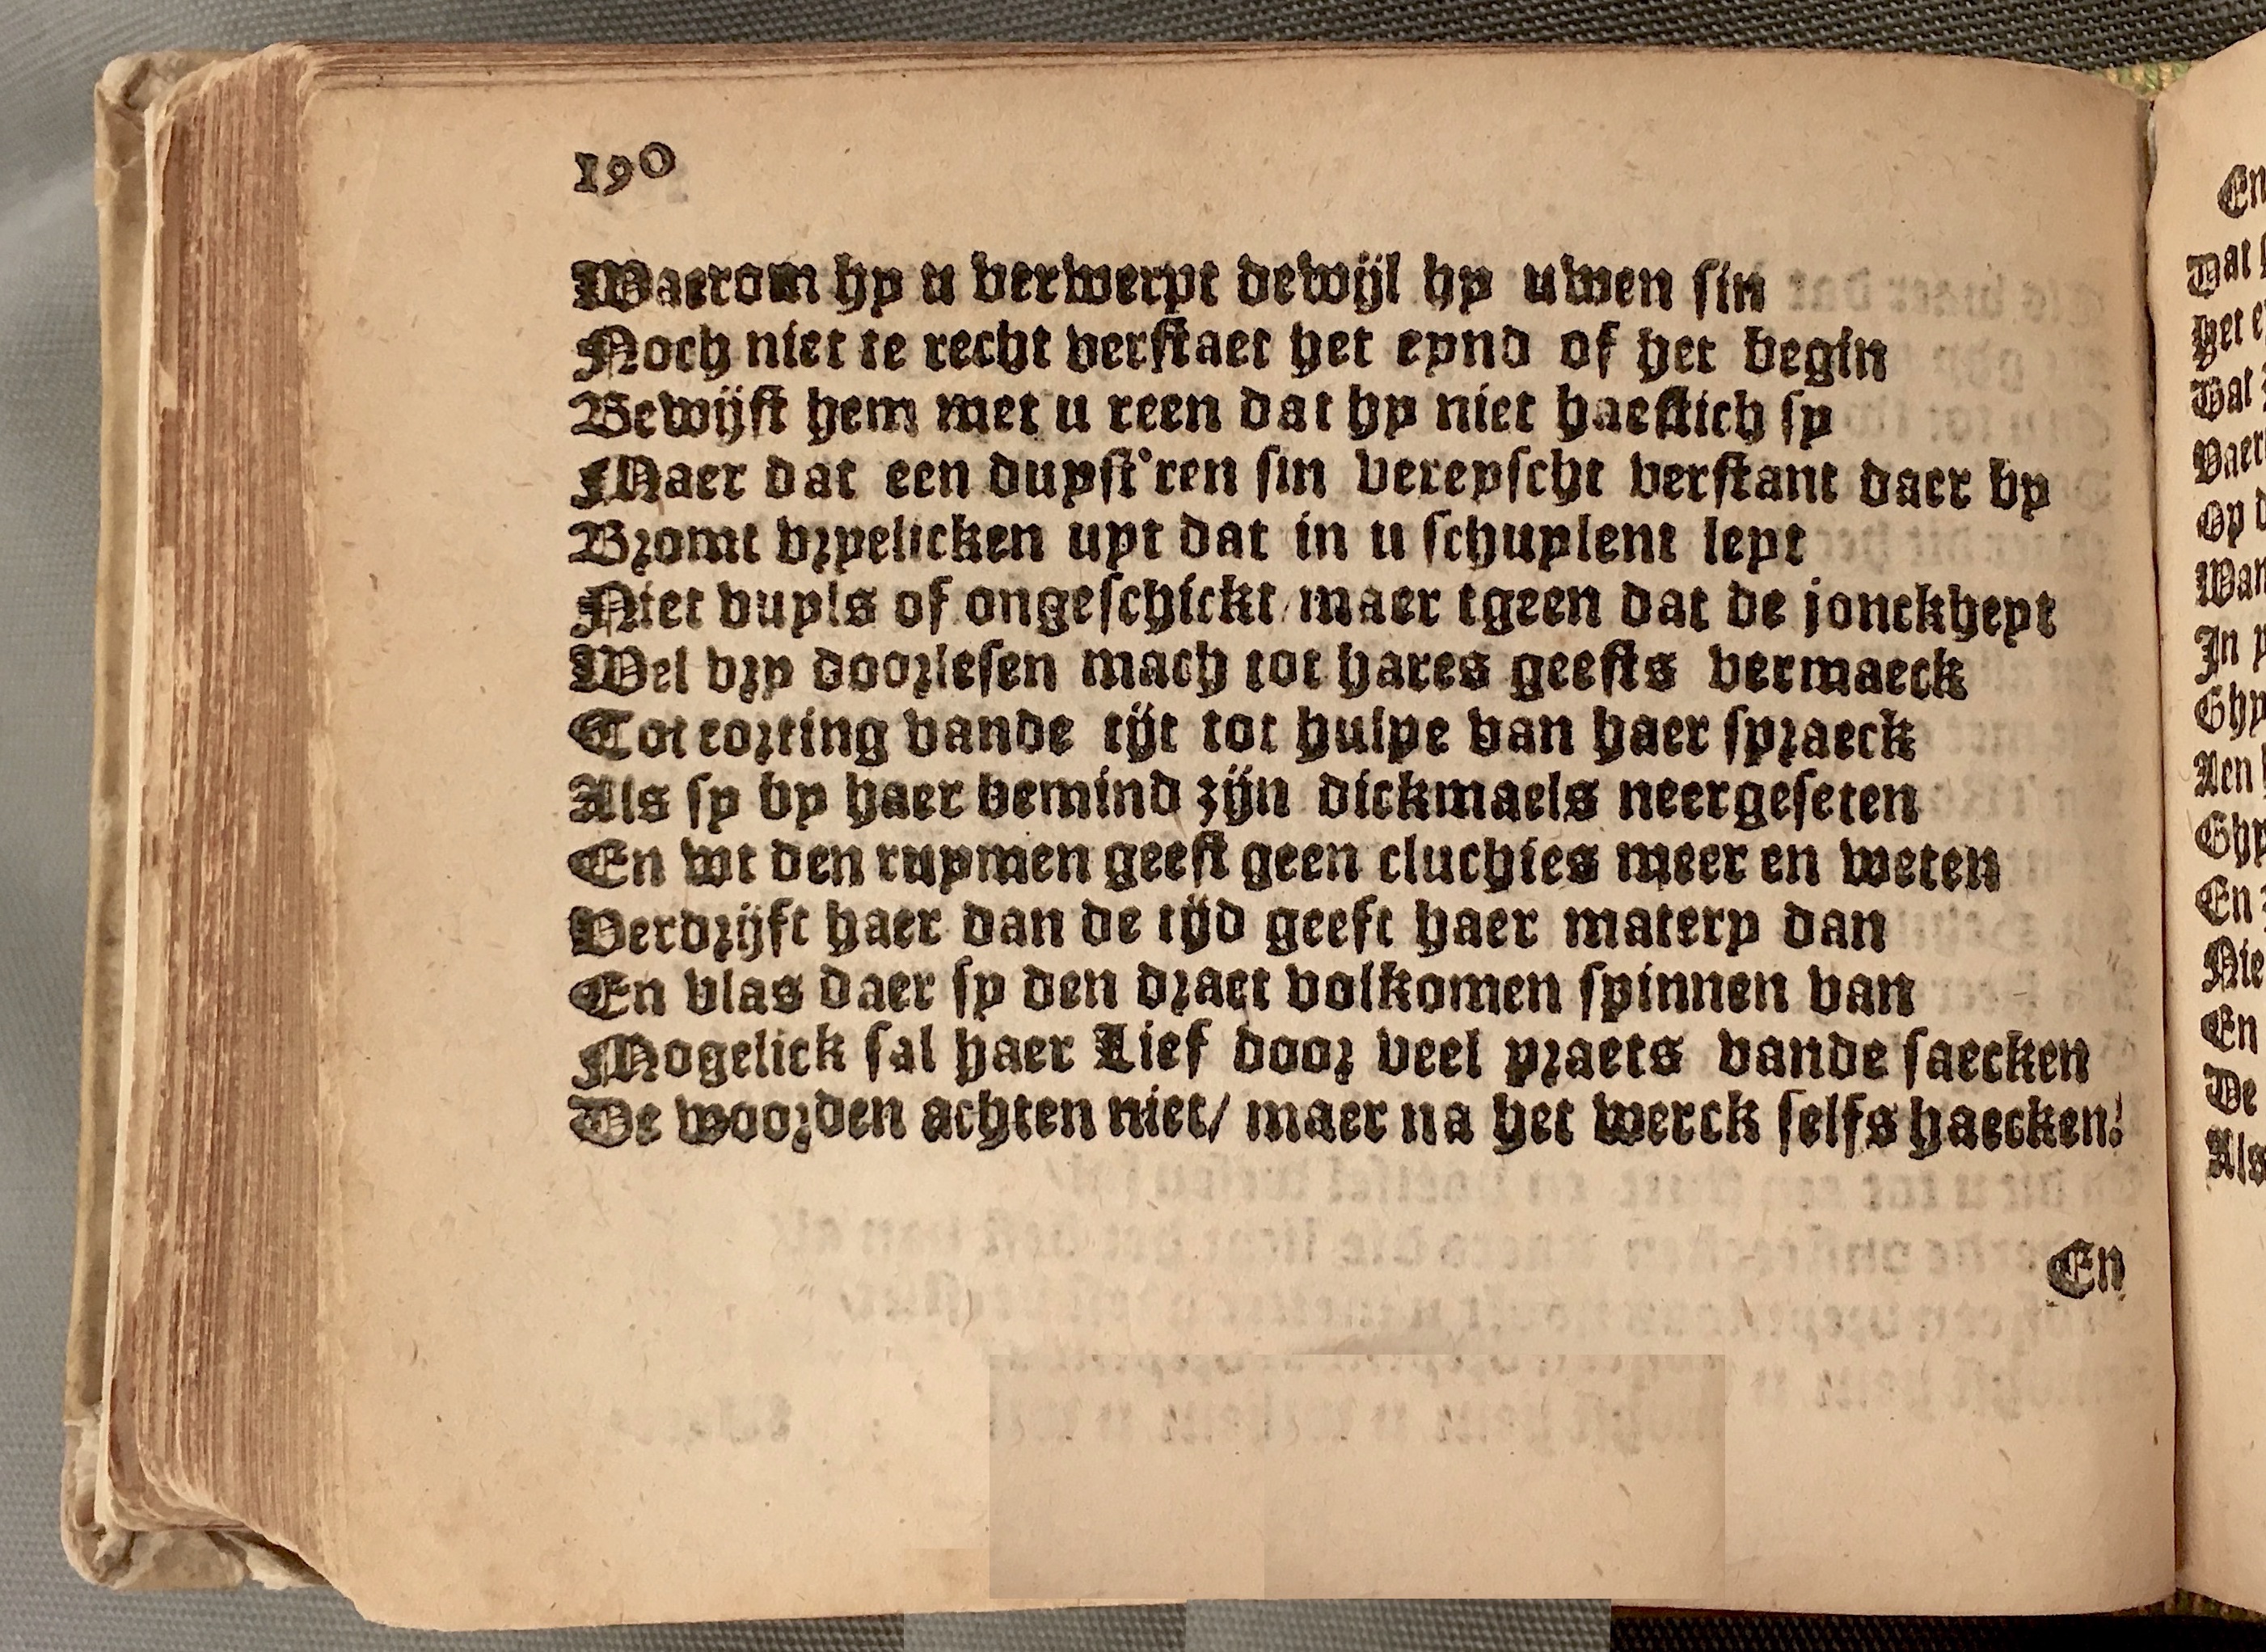 190
Waerom hy u verwerpt dewijl hy uwen sin
Noch niet te recht verstaet het eynd of het begin
Bewijst hem met u reen dat hy niet haestich sy
Maer dat een duyst'ren sin vereyscht verstant daer by
Bromt vryelicken uyt dat in u schuylent leyt
Niet vuyls of ongeschickt/maer tgeen dat de jonckheyt
Wel vry doorlesen mach tot hares geests vermaeck
Tot corting vande tijt tot hulpe van haer spraeck
Als sy by haer bemind zijn dickmaels neergeseten
En wt den ruymen geest geen cluchies meer en weten
Verdrijft haer dan de tijd geeft haer matery dan
En vlas daer sy den draet volkomen spinnen van
Mogelick sal haer Lief door veel praets vande saecken
De woorden achten niet/ maer na het werck selfs haecken!
En
En
Dat
Het
Dat
Op
In
Ghy
Aen
En
En
De
Als